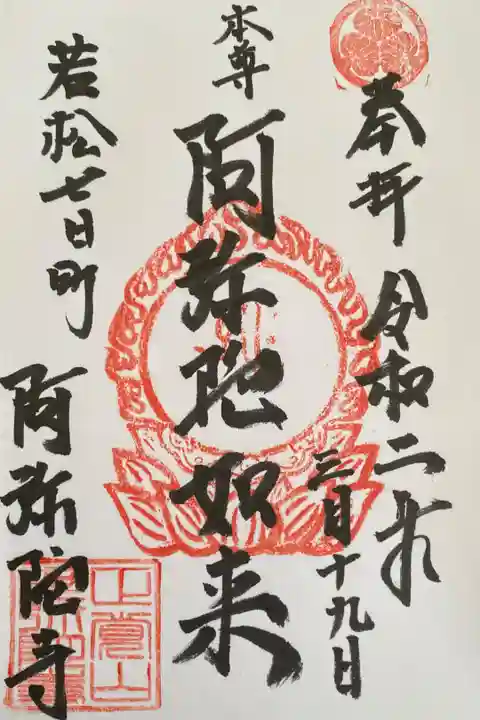 奉拝 令和二年
三月十九日
本尊
阿弥陀如来
若松七日町
阿弥陀寺
正覚山